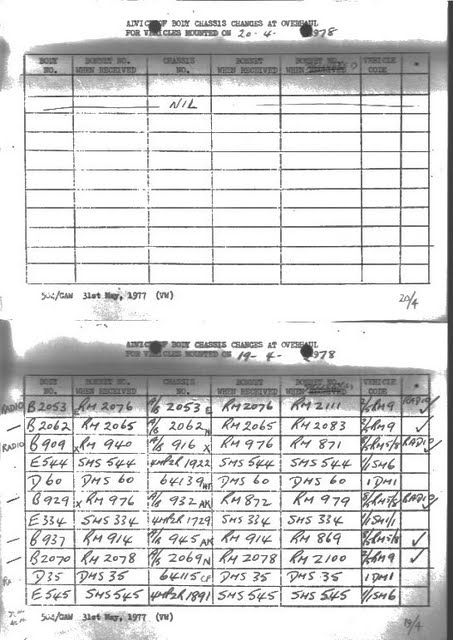 ADVICE OF BODY CHASSIS CHANGES AT OVERHAUL
FOR VEHICLES MOUNTED ON 20-4-1978
BODY NO. BONNET NO. WHEN RECEIVED CHASSIS NO. BONNET NO. WHEN RECEIVED BONNET NO. WHEN VEHICLE CODE *
NIL
50c/GAW 31st May, 1977 (VW) 20/4
ADVICE OF BODY CHASSIS CHANGES AT OVERHAUL
FOR VEHICLES MOUNTED ON 19-4-1978
BODY NO. BONNET NO. WHEN RECEIVED CHASSIS NO. BONNET NO. WHEN RECEIVED BONNET NO. WHEN VEHICLE CODE *
RADIO B2053 RM 2076 2053 RM2076 RM 2111 RM9 RADIO ✓
— B2062 RM 2065 2062 RM2065 RM 2083 RM9 ✓
RADIO B909 X RM 940 916 X RM 976 RM 871 RADIO ✓
E544 SMS 544 1922 SMS 544 SMS 544 SM6
D60 DMS 60 64139 DMS 60 DMS 60 1DM1
— B929 X RM 976 932 AK RM872 RM 979 RADIO ✓
E334 SMS 334 1729 SMS 334 SMS 334
— B937 RM 914 945 AK RM 914 RM 869 ✓
— B2070 RM 2078 2069 N RM 2078 RM 2100 RM9 ✓
D35 DMS 35 64115 CF DMS 35 DMS 35 1DM1
E545 SMS 545 1891 SMS 545 SMS 545 SM6
50c/GAW 31st May, 1977 (VW) 19/4